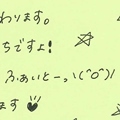 わります。
ちですよ!
ふぁいとーっ\(^o^)/
ます